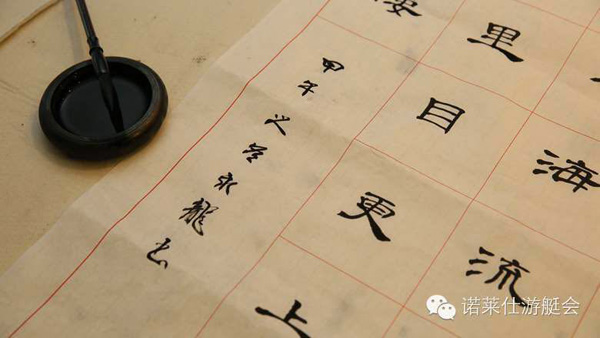 海流
里目更上
甲午之永龍书
诺莱仕游艇会